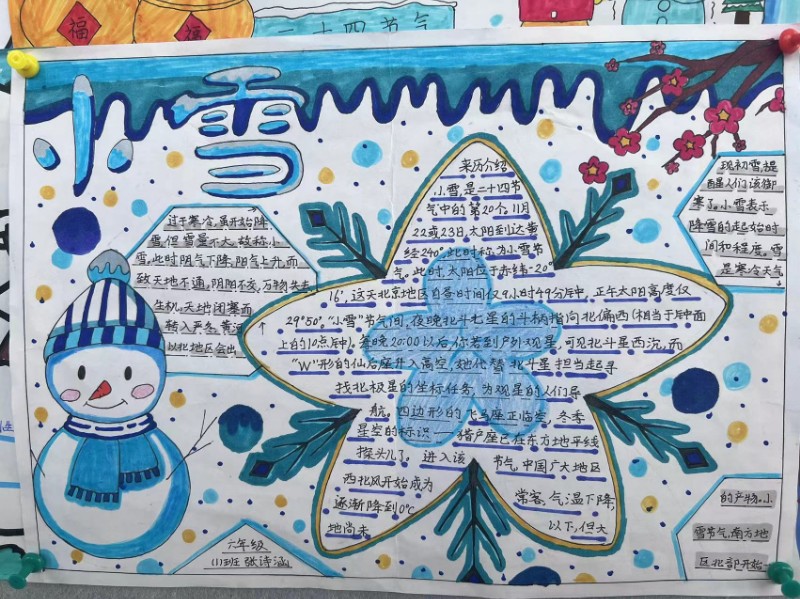 福
福
二十四节气
小雪
过于寒冷,虽开始降
雪,但雪量不大,故称小
雪,此时阴气下降,阳气上升,而
致天地不通,阴阳不交,万物失去
生机,天地闭塞而
转入严冬,黄河
以北地区会出
来历介绍
小雪,是二十四节
气中的第20个,11月
22或23日,太阳到达黄
经240°,此时称为小雪节
气。此时,太阳位于赤纬-20°
16′,这天北京地区白昼时间仅9小时49分钟,正午太阳高度仅
29°50′,“小雪”节气间,夜晚北斗七星的斗柄指向北偏西(相当于钟面
上的10点钟)。每晚20:00以后,你若到户外观星,可见北斗星西沉,而
“W”形的仙后座升入高空,她代替北斗星担当起寻
找北极星的坐标任务,为观星的人们导
航。四边形的飞马座正临空,冬季
星空的标识——猎户座已在东方地平线
探头儿了。进入该节气,中国广大地区
西北风开始成为常客,气温下降,
逐渐降到0℃以下,但大
地尚未
现初雪,提
醒人们该御
寒了。小雪表示
降雪的起始时
间和程度。雪
是寒冷天气
的产物。小
雪节气,南方地
区北部开始
六年级
(1)班 张诗涵